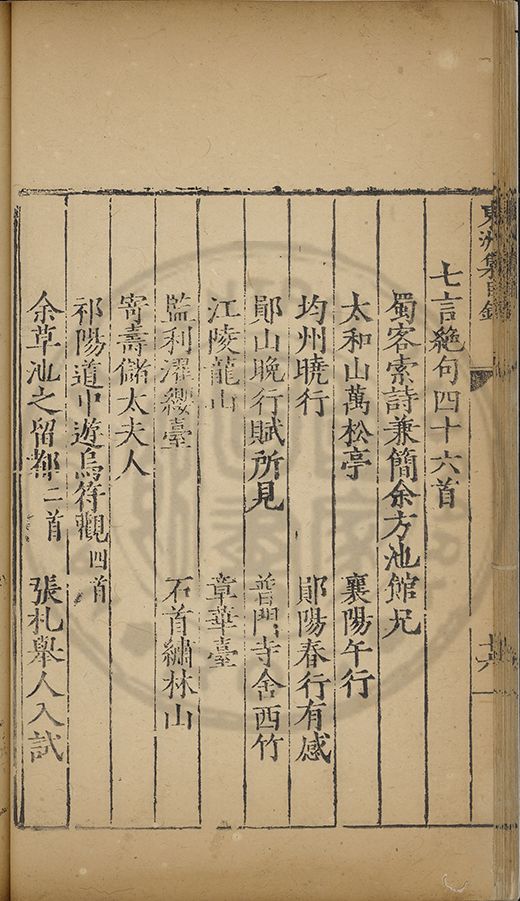 東洲集目錄
七言絶句四十六首
蜀客索詩兼簡余方池館兄
太和山萬松亭 襄陽午行
均州曉行 鄖陽春行有感
鄖山晚行賦所見 普門寺舍西竹
江陵龍山 章華臺
監利濯纓臺 石首繡林山
寄壽儲太夫人
祁陽道中遊烏符觀四首
余草池之留都二首 張札舉人入試